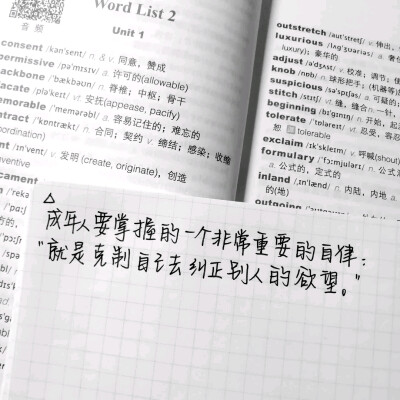 Word List 2
Unit 1
音频
consent /kən'sent/ n. & v. 同意,赞成
permissive /pə'mɪsɪv/ a. 许可的(allowable)
backbone /'bækbəʊn/ n. 脊椎;中枢;骨干
placate /plə'keɪt/ vt. 安抚(appease, pacify)
memorable /'memərəbl/ a. 容易记住的;难忘的
contract /'kɒntrækt/ n. 合同;契约 v. 缔结;感染;收缩
invent /ɪn'vent/ v. 发明 (create, originate),创造
inventive
outstretch /aʊt'stretʃ/ v. 伸出
luxurious /lʌɡ'ʒʊəriəs/ a.
luxury);豪华的
adjust /ə'dʒʌst/ v. 校准;调节;
knob /nɒb/ n. 球形把手;(机器等)
suspicious /sə'spɪʃəs/ a. 可疑的;
stitch /stɪtʃ/ vt. 缝,缝合 n. 一针,
beginning /bɪ'ɡɪnɪŋ/ n. 开始,起
tolerate /'tɒləreɪt/ vt. 忍受,容忍
tolerable
exclaim /ɪk'skleɪm/ v. 呼喊(shout)
formulary /'fɔːmjʊləri/ n. 公式
a. 公式的,定式的
inland /ˌɪn'lænd/ n. 内陆,内地 a.
的(地)
outgoing
△
成年人要掌握的一个非常重要的自律:
"就是克制自己去纠正别人的欲望。"